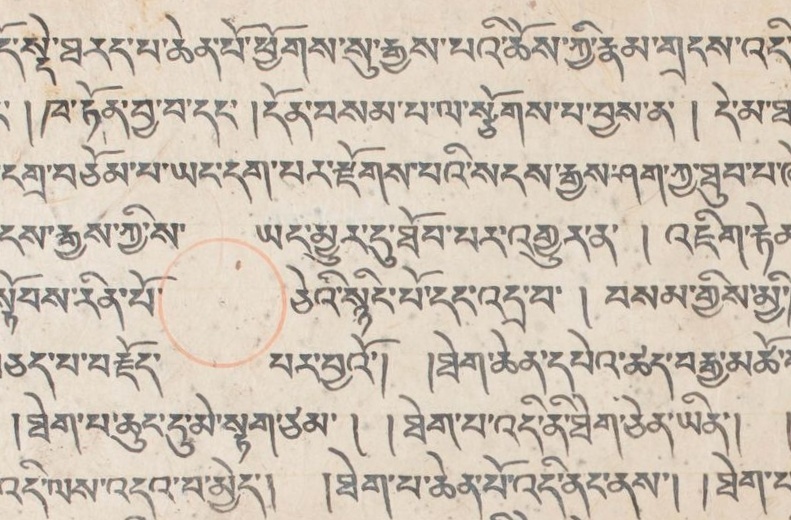 མདོ་སྡེ་ཐརད་པ་ཆེན་པོ་ཕྱོགས་སུ་རྒྱས་པའི་ཆོས་ཀྱི་རྣམ་གྲངས་འདི་
། །ཁ་ཏོན་བྱ་བ་དང་ །དོན་བསམ་པ་ལ་སྩོགས་པ་བྱས་ན་ །
དགྲ་བཅོམ་པ་ཡང་དག་པར་རྫོགས་པའི་སངས་རྒྱས་ཤག་ཀྱ་ཐུབ་པ་
ངས་རྒྱས་ཀྱིས་ ཡང་མྱུར་དུ་ཐོབ་པར་འགྱུར་ན་ ། འཇིག་རྟེན
སྟོབས་རིན་པོ་ ཅེའི་སྙིང་པོ་དང་འདྲ་བ་ ། བསམ་གྱིས་མྱི་
ཅད་པ་བརྗོད་ པར་བྱའོ། །ཐེག་ཆེན་དཔེའ་ཚད་བརྒྱ་མཚོ
།ཐེག་པ་ཆུང་ངུ་མེ་སྟག་ཙམ་ ། །ཐེག་པ་འདི་ནི་ཐེག་ཅེན་ཡིན། །
འདི་ལས་འདའ་བ་མྱེད། །ཐེག་པ་ཆེན་པོ་འདི་ནིང་ནས། །ཐེག་པ